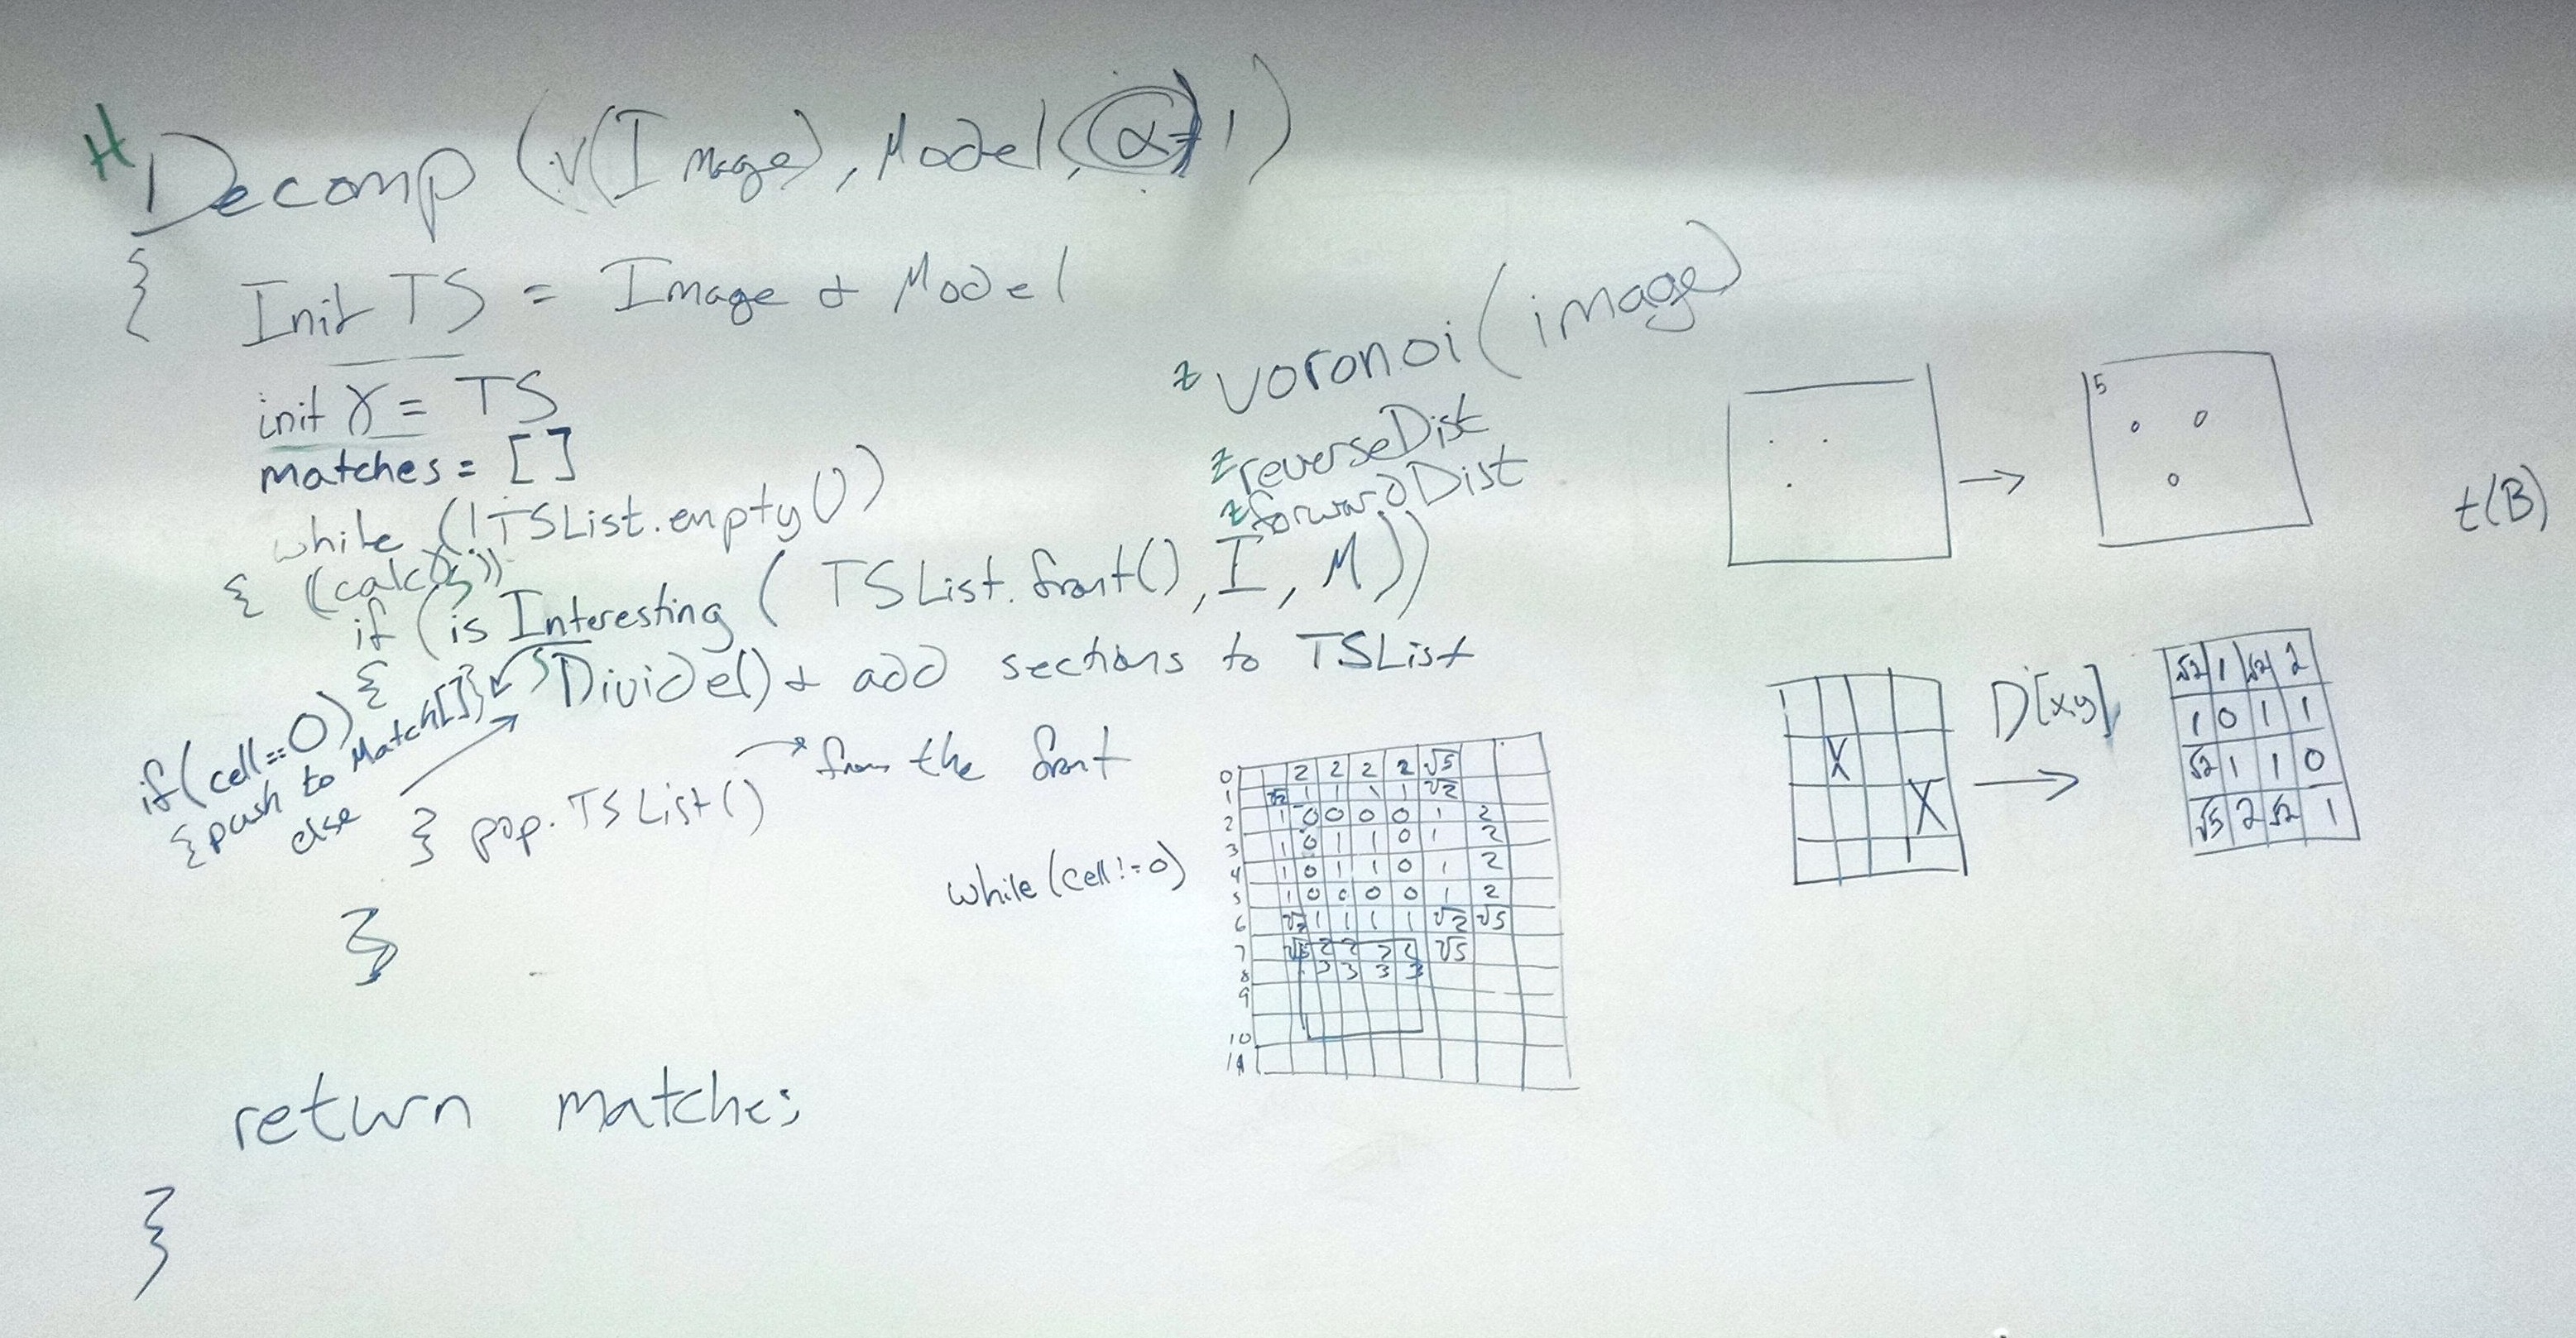 H
Decomp (v(Image), Model, α=1)
{ Init TS = Image & Model
init γ = TS
matches = []
while (!TSList.empty())
{ (calc γ's)
if (is Interesting ( TSList.front(), I, M))
{ Divide() & add sections to TSList
if (cell==0)
{push to Match[]}
else
} pop.TSList() → from the front
}
return matches
}
z voronoi (image)
z reverseDist
z forwardDist
→ 5
t(B)
X
X
D[x,y]
→
√2 1 √2 2
1 0 1 1
√2 1 1 0
√5 2 √2 1
while (cell != 0)
0 2 2 2 2 √5
1 √2 1 1 1 1 √2
2 1 0 0 0 0 1 2
3 1 0 1 1 0 1 2
4 1 0 1 1 0 1 2
5 1 0 0 0 0 1 2
6 √2 1 1 1 1 √2 √5
7 √5 2 2 2 2 √5
8 3 3 3 3
9
10
11